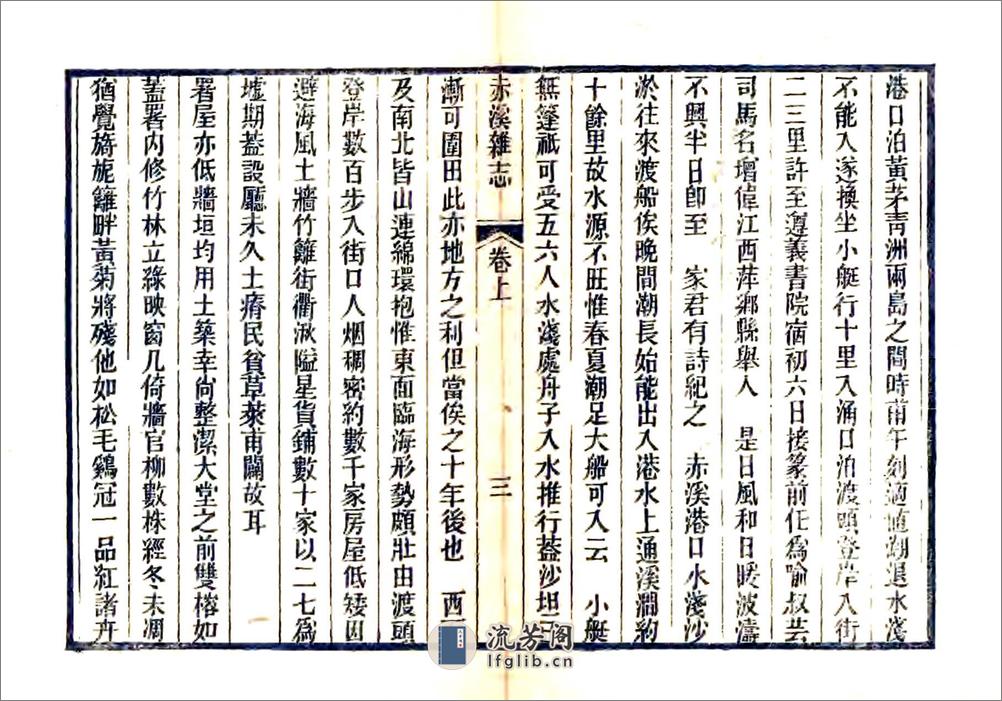 港口泊黃茅靑洲兩島之間時甫午刻適值潮退水淺
不能入遂換坐小艇行十里入涌口泊渡頭登岸入街
二三里許至遵義書院宿初六日接篆前任爲喻叔芸
司馬名增偉江西萍鄕縣舉人　是日風和日暖波濤
不興半日卽至　家君有詩紀之　赤溪港口水淺沙
淤往來渡船俟晚間潮長始能出入港水上通溪澗約
十餘里故水源不旺惟春夏潮足大船可入云　小艇
無篷祇可受五六人水淺處舟子入水推行蓋沙坦
赤溪雜志　卷上　三
漸可圍田此亦地方之利但當俟之十年後也　西
及南北皆山連綿環抱惟東面臨海形勢頗壯由渡頭
登岸數百步入街口人烟稠密約數千家房屋低矮因
避海風土牆竹籬街衢湫隘星貨鋪數十家以二七爲
墟期蓋設廳未久土瘠民貧草萊甫闢故耳
署屋亦低牆垣均用土築幸尙整潔大堂之前雙榕如
蓋署內修竹林立綠映窗几倚牆官柳數株經冬未凋
猶覺旖旎籬畔黃菊將殘他如松毛鷄冠一品紅諸卉
流芳阁
lfglib.cn